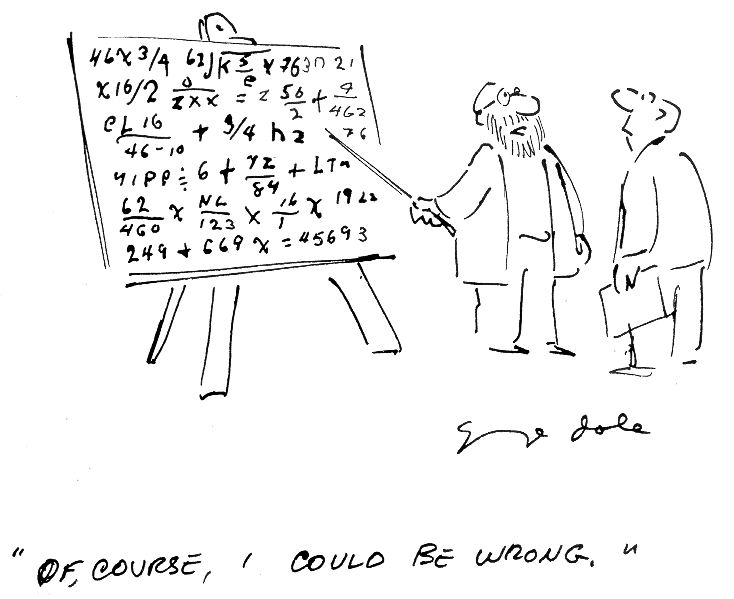 46x3/4 62√K 5/e x 763n 21
x16/2 0/zxx = 2 50/2 + 9/462
eL16/46-10 + 3/4 h2 76
41PP÷6 + 42/84 + L7
62/460 x NL/123 x 16/1 x 19
249 + 669 x = 45693
"OF, COURSE, I COULD BE WRONG."